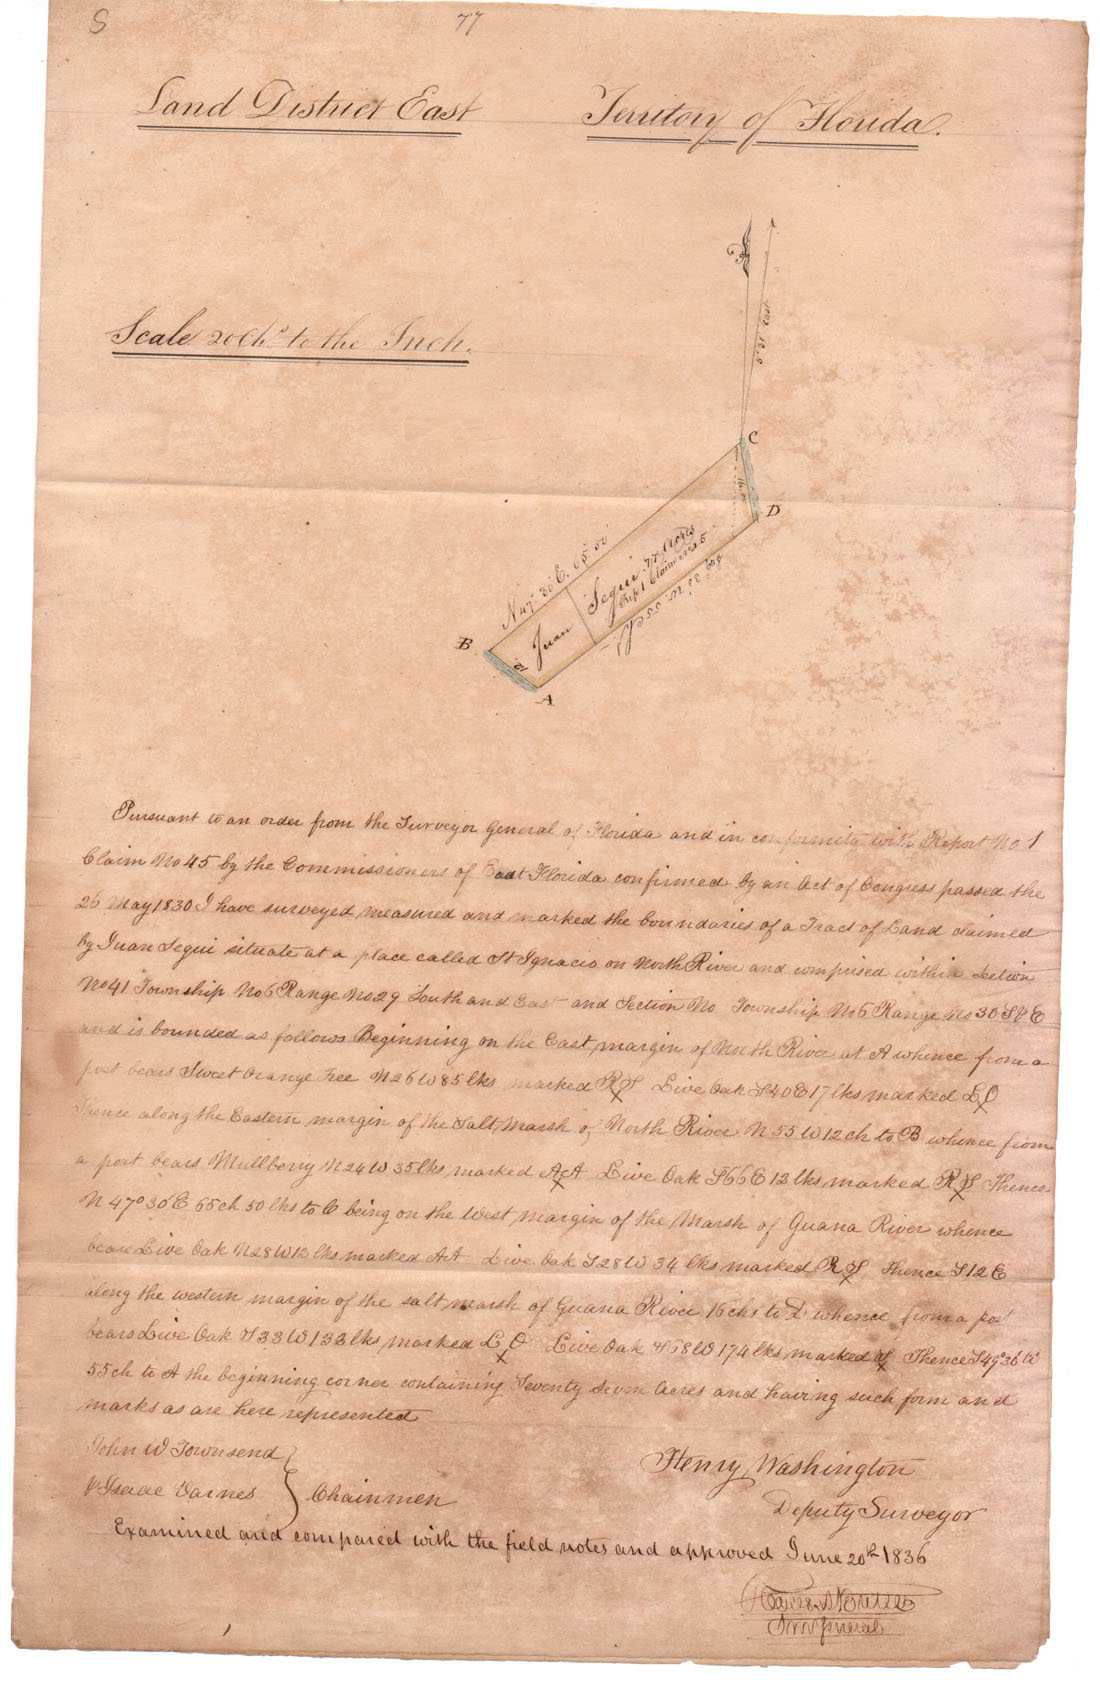 S
77
Land District East Territory of Florida.
Scale 20 Chs to the Inch.
5° 31' East
C
16.00
D
N 47° 30' E. 65.50
Juan Segui 77 Acres
Rep 1 Claim No 45
S 49° 30' W. 55 ch
B
12
A
Pursuant to an order from the Surveyor General of Florida and in conformity with Report No 1
Claim No 45 by the Commissioners of East Florida confirmed by an Act of Congress passed the
26 May 1830 I have surveyed measured and marked the boundaries of a Tract of Land claimed
by Juan Segui situate at a place called St Ignacio on North River and comprised within Section
No 41 Township No 6 Range No 29 South and East and Section No Township No 6 Range No 30 S & E
and is bounded as follows Beginning on the East margin of North River at A whence from a
post bears Sweet Orange Tree N 26 W 85 lks marked R S Live Oak S 40 E 17 lks marked L O
Thence along the Eastern margin of the Salt Marsh of North River N 55 W 12 ch to B whence from
a post bears Mullberry N 24 W 35 lks marked A A Live Oak S 66 E 12 lks marked R S Thence
N 47° 30' E 65 ch 50 lks to C being on the West margin of the Marsh of Guana River whence
bears Live Oak N 28 W 13 lks marked A A Live Oak S 28 W 34 lks marked R S Thence S 12 E
along the western margin of the salt marsh of Guana River 16 chs to D whence from a post
bears Live Oak S 33 W 133 lks marked L O Live Oak S 68 W 174 lks marked S Thence S 49° 30' W
55 ch to A the beginning corner containing Seventy Seven Acres and having such form and
marks as are here represented
John W Townsend
Isaac Varnes } Chainmen
Henry Washington
Deputy Surveyor
Examined and compared with the field notes and approved June 20th 1836
Surv General